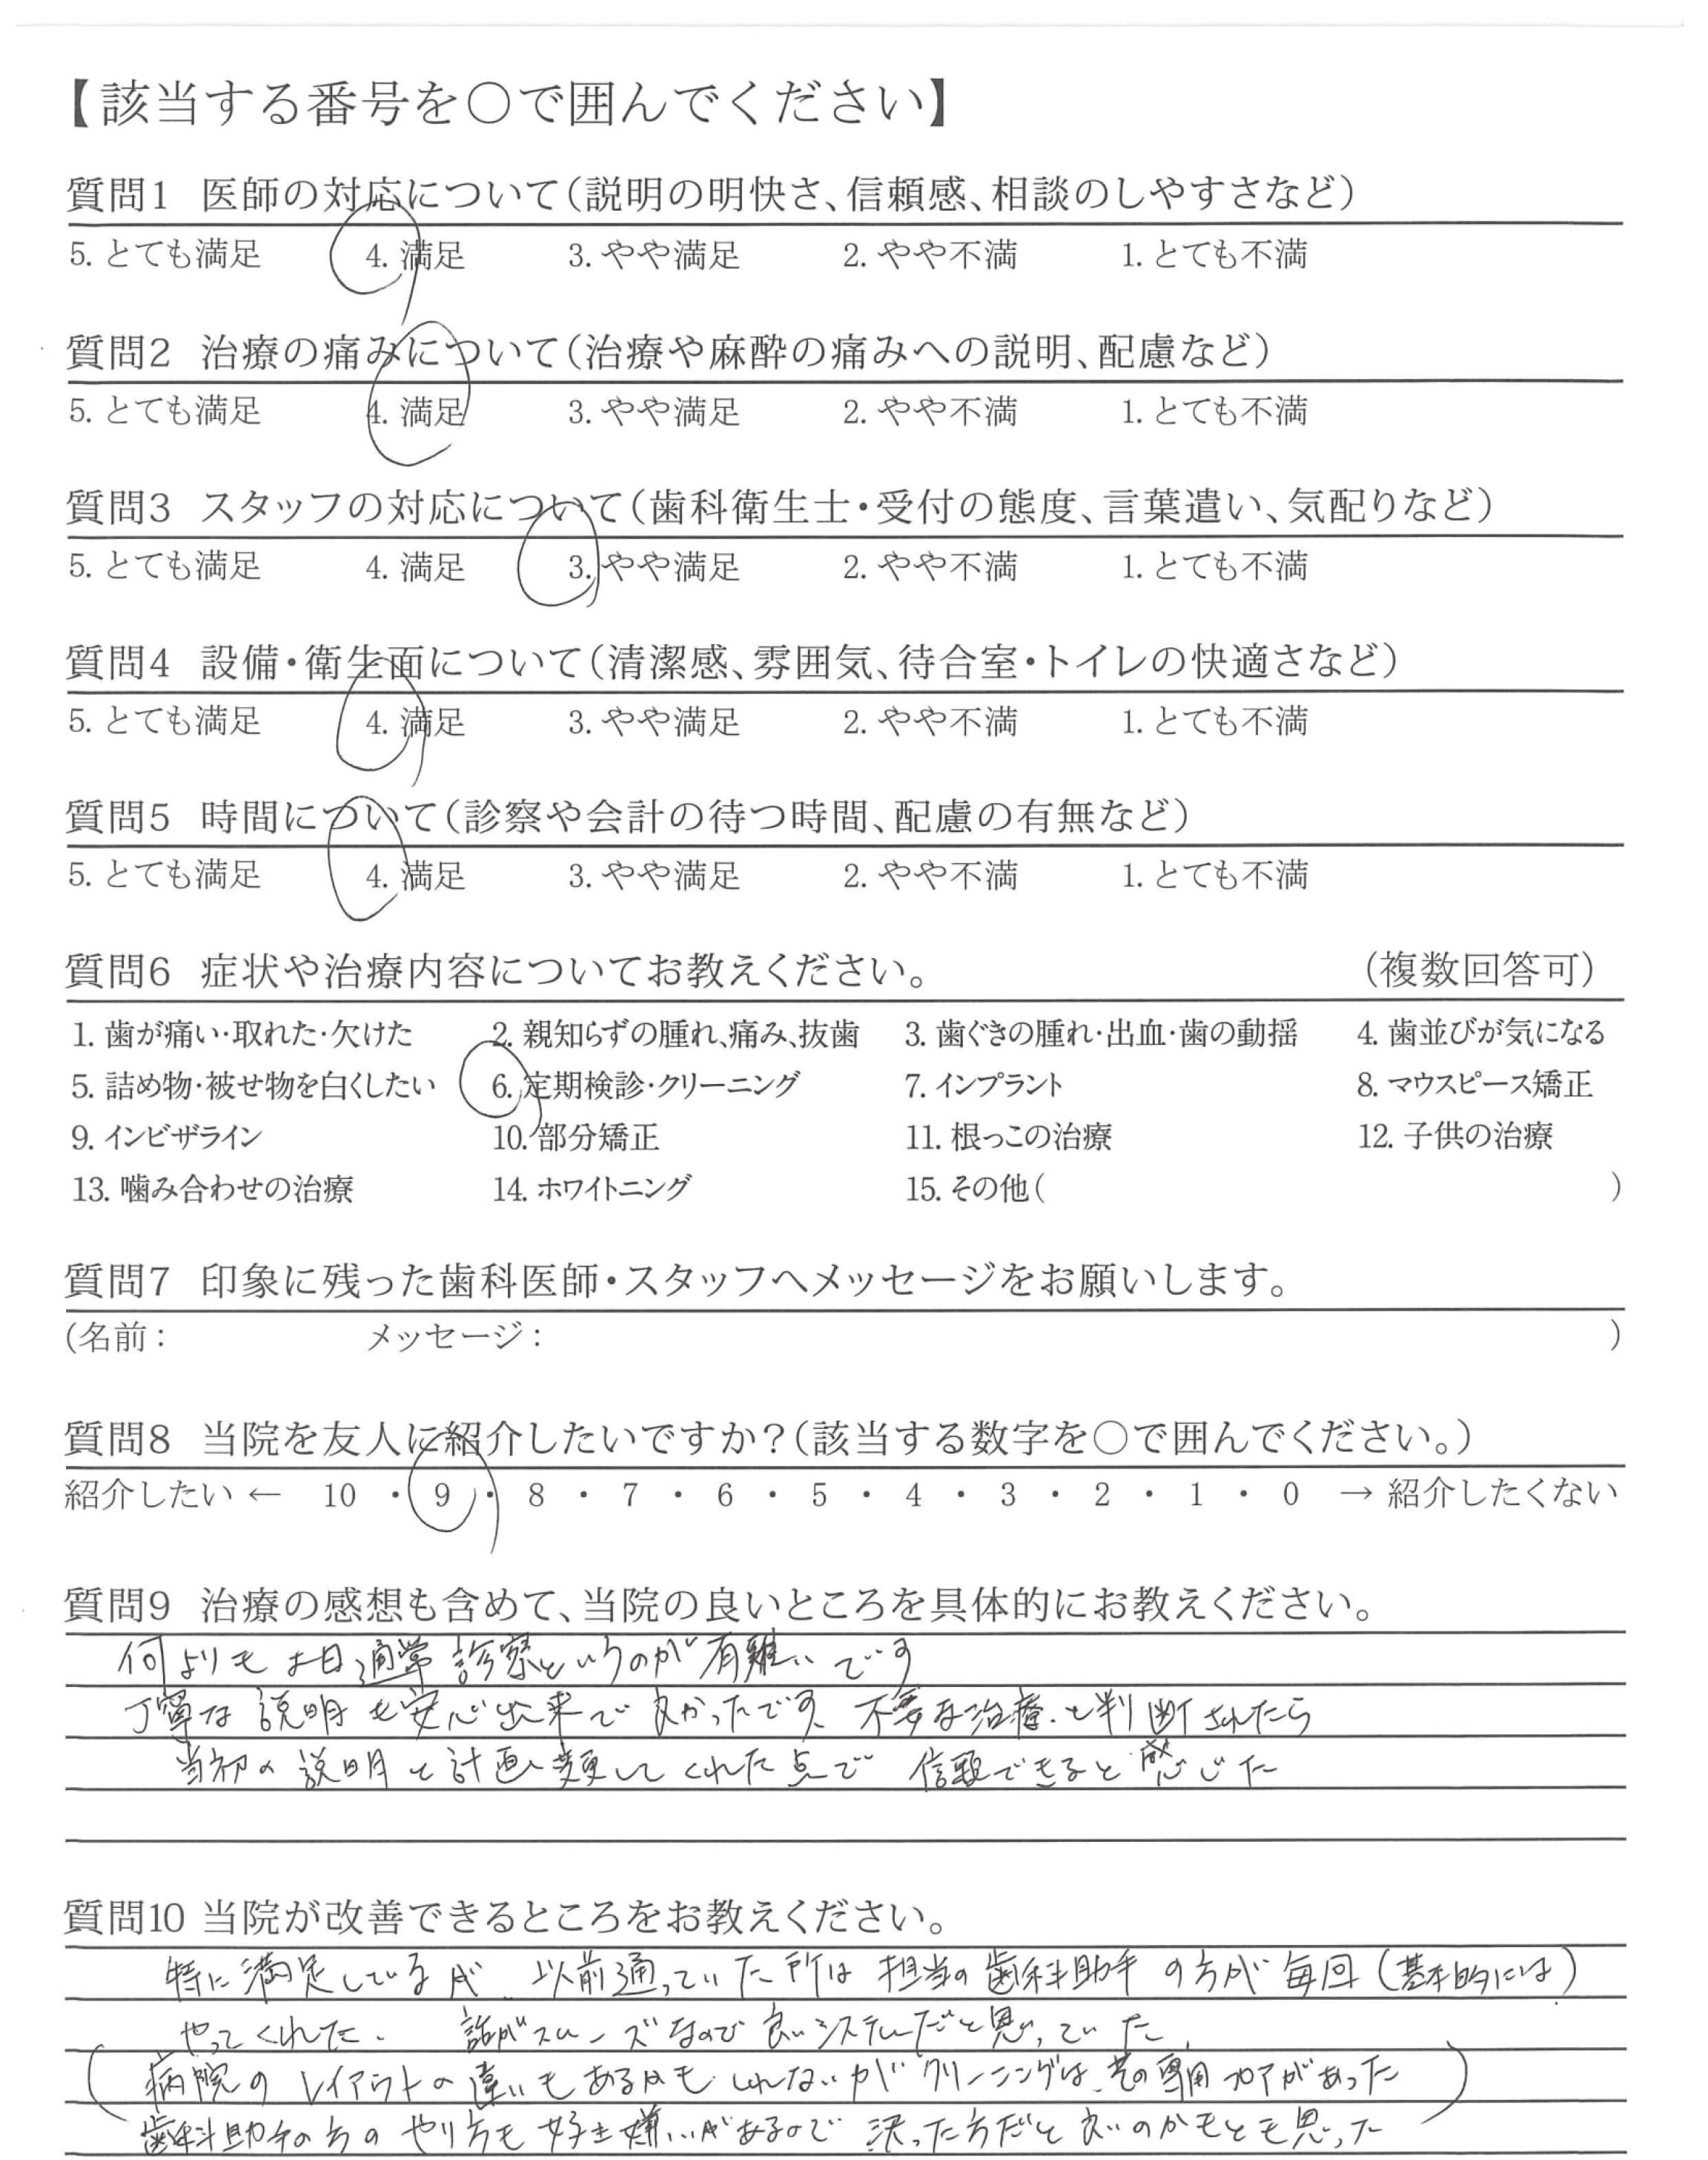 【該当する番号を〇で囲んでください】
質問1 医師の対応について（説明の明快さ、信頼感、相談のしやすさなど）
5. とても満足 4. 満足 3. やや満足 2. やや不満 1. とても不満
質問2 治療の痛みについて（治療や麻酔の痛みへの説明、配慮など）
5. とても満足 4. 満足 3. やや満足 2. やや不満 1. とても不満
質問3 スタッフの対応について（歯科衛生士・受付の態度、言葉遣い、気配りなど）
5. とても満足 4. 満足 3. やや満足 2. やや不満 1. とても不満
質問4 設備・衛生面について（清潔感、雰囲気、待合室・トイレの快適さなど）
5. とても満足 4. 満足 3. やや満足 2. やや不満 1. とても不満
質問5 時間について（診察や会計の待つ時間、配慮の有無など）
5. とても満足 4. 満足 3. やや満足 2. やや不満 1. とても不満
質問6 症状や治療内容についてお教えください。 （複数回答可）
1. 歯が痛い・取れた・欠けた 2. 親知らずの腫れ、痛み、抜歯 3. 歯ぐきの腫れ・出血・歯の動揺 4. 歯並びが気になる
5. 詰め物・被せ物を白くしたい 6. 定期検診・クリーニング 7. インプラント 8. マウスピース矯正
9. インビザライン 10. 部分矯正 11. 根っこの治療 12. 子供の治療
13. 噛み合わせの治療 14. ホワイトニング 15. その他（ ）
質問7 印象に残った歯科医師・スタッフへメッセージをお願いします。
（名前： メッセージ： ）
質問8 当院を友人に紹介したいですか？（該当する数字を〇で囲んでください。）
紹介したい ← 10 ・ 9 ・ 8 ・ 7 ・ 6 ・ 5 ・ 4 ・ 3 ・ 2 ・ 1 ・ 0 → 紹介したくない
質問9 治療の感想も含めて、当院の良いところを具体的にお教えください。
何よりも土日通常診察というのが有難いです
丁寧な説明も安心出来て良かったです、不要な治療と判断されたら
当初の説明と計画 してくれた点で 信頼できると感じた
質問10 当院が改善できるところをお教えください。
特に満足しているが、以前通っていた所は 担当の歯科助手の方が毎回（基本的には）
やってくれた。 話がスムーズなので良いシステムだと思っていた、
（病院のレイアウトの違いもあるかもしれないがクリーニングは、その専用フロアがあった）
歯科助手の方のやり方も好き嫌いがあるので 決った方だと良いのかもとも思った